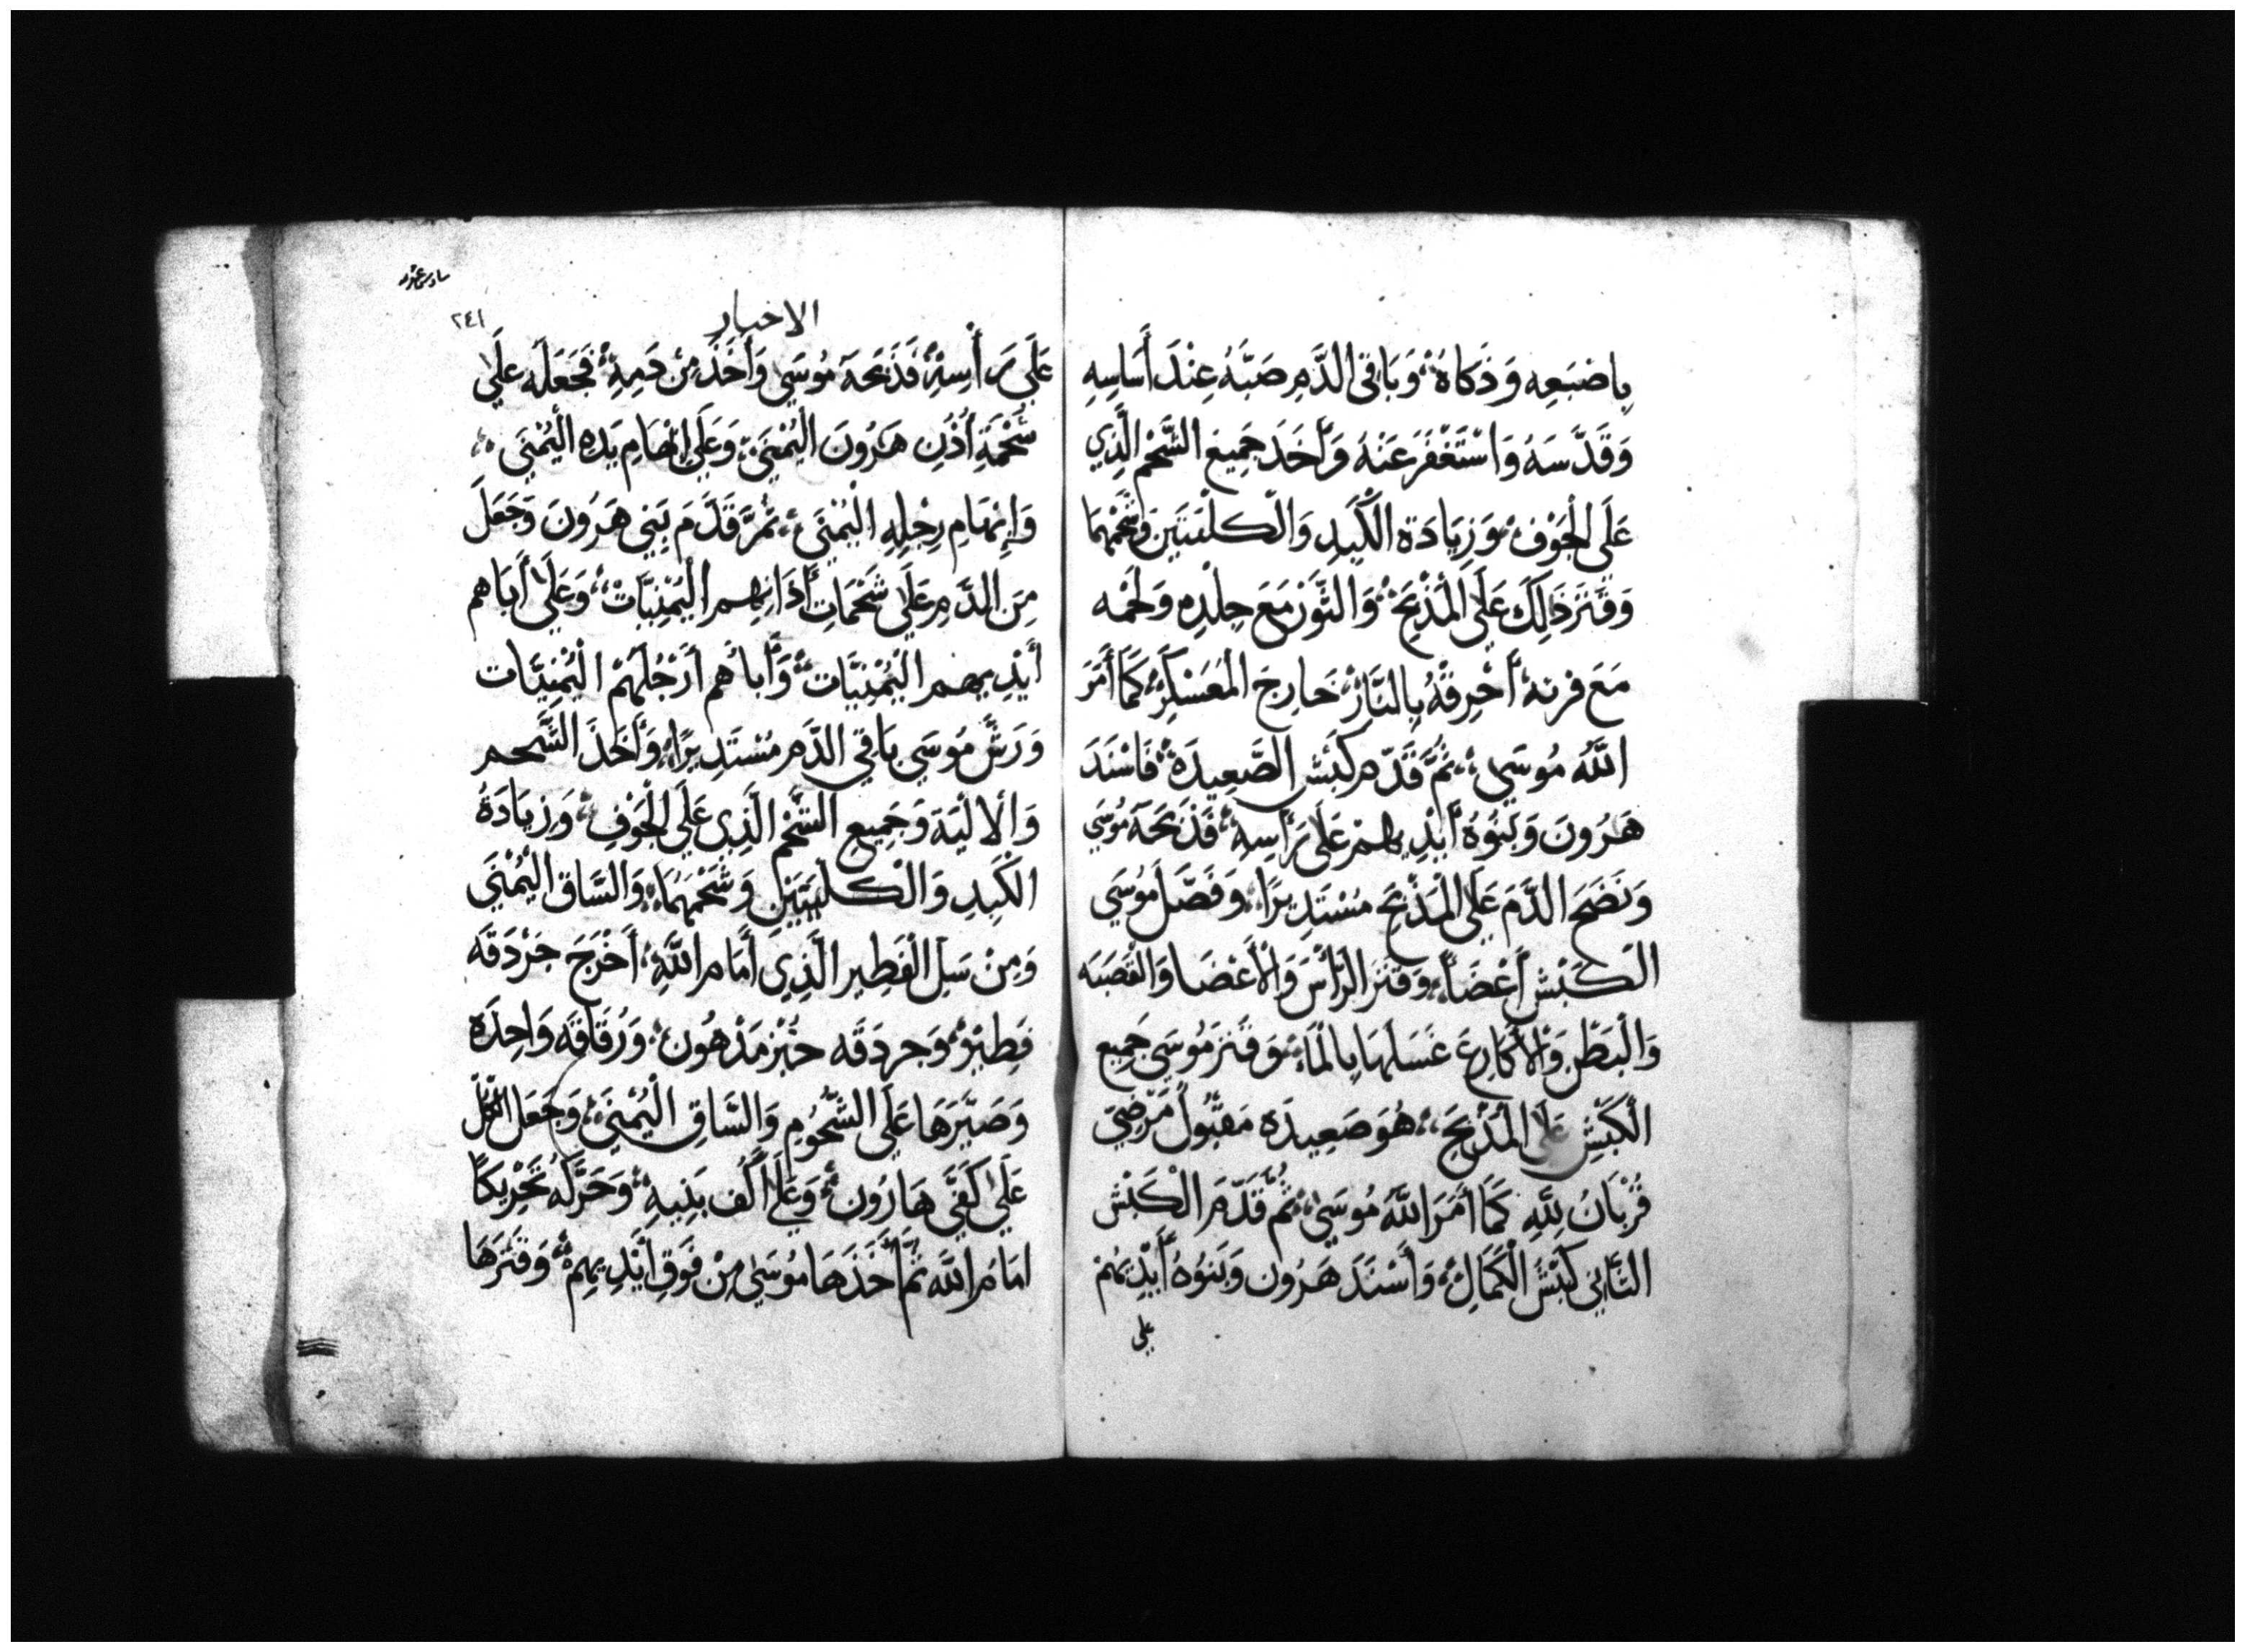 باضبَعِه وَذَكاهُ وَبَاقِى الدَّمِ صَبَّهُ عِنْدَ أَسَاسِهِ
وَقَدَّسَهُ وَاسْتَغْفَرَ عَنْهُ وَأَخَذَ جَمِيعَ الشَّحْمِ الَّذِي
عَلَى الجَوْفِ وَزِيَادَة الكَبِدِ وَالكلْيَتَيَن وَشَحْمَهُمَا
وَقَتَرَ ذَلِكَ عَلَى المَذْبَحِ وَالثَّوْرَ مَعَ جِلْدِهِ وَلَحْمه
مَعَ فرنه أَحْرِقْهُ بِالنَّارِ خَارِجَ المُعَسْكَرِ كَمَا أَمَرَ
اللَّهُ مُوسَى ثُمَّ قَدَّم كَبْشَ الصَّعِيدَة فَاسْنَدَ
هَرُونَ وَبَنُوهُ أَيْدِيهم عَلَى رَأسِه فَذَبَحَهُ مُوسَي
وَنَضَحَ الدَّمَ عَلَى المَذْبَحِ مُسْتَدِيرًا وَفَصَّلَ مُوسَي
الكَبْش أَعْضَاً وَقَتَرَ الرَّأْسَ وَالأَعْضَا وَالقَصَبَه
وَالْبَطْنَ وَالأَكَارِعَ غَسَلَهَا بِالْمَاءِ وَقَتَرَ مُوسَي جَمِيع
الكَبْشِ عَلَى المَذْبَحِ هُوَ صَعِيدَه مَقْبُولُ مَرْضِيّ
قُرْبَانُ لِلَّهِ كَمَا أَمَرَ اللَّهُ مُوسَى ثُمَّ قَدَّمَ الْكَبْش
الثَّانِي كَبْشَ الْكَمَالِ وَأَسْنَدَ هَرُون وَبَنوُهُ أَيْدِيَهُمْ
علي
٢٤١
الاخبار
عَلَى رَأْسِهِ فَذَبَحَهُ مُوسَي وَأَخَذَ مِن دَمِهِ فَجَعَلَه عَلَى
شَحْمَةِ أُذُنِ هَرُونَ اليُمْنَى وَعَلَى ابْهَامِ يَدِهِ اليُمْنَي
وَإِبْهَامِ رِجْلِهِ اليُمْنَي ثُمَّ قَدَّمَ بَنِي هَرُونَ وَجَعَلَ
مِنَ الدَّمِ عَلَى شَحَمَاتِ أَذَانِهِم اليُمْنِيَّات وَعَلَى أَبَاهم
أَيْدِيهِم اليُمْنِيَّات وَأَبَاهُم أَرْجُلَهُمْ الْيُمْنِيَّات
وَرَشَّ مُوسَي بَاقِي الدَّم مُسْتَدِيرًا وَأَخَذَ الشَّحم
وَالالْيَة وَجَمِيع الشَّحْمِ الَّذِى عَلَى الْجَوْفِ وَزِيَادَةُ
الكَبِدِ وَالْكلْيَتَيْنِ وَشَحْمَهُمَا وَالسَّاق اليُمْنَي
وَمِنْ سَلِ الْفَطِير الَّذِي أَمَام اللَّهِ أَخْرَجَ جَرْدَقَه
فَطِيْرْ وَجردَقَه خُبْز مَدْهُون وَرُقَاقَه وَاحِدَه
وَصَيَّرَهَا عَلَى الشُّحُومِ وَالسَّاقِ الْيُمْنَي وَجَعَل الكُلّ
عَلَى كَفَّي هَارُون وَعَلَى أَكُف بَنِيهِ وَحَرَّكَهُ تَحْرِيكًا
امَامَ اللَّه ثُمَّ أَخَذَهَا مُوسَى مِنْ فَوقِ أَيْدِيهِم وَقَتَرَهَا